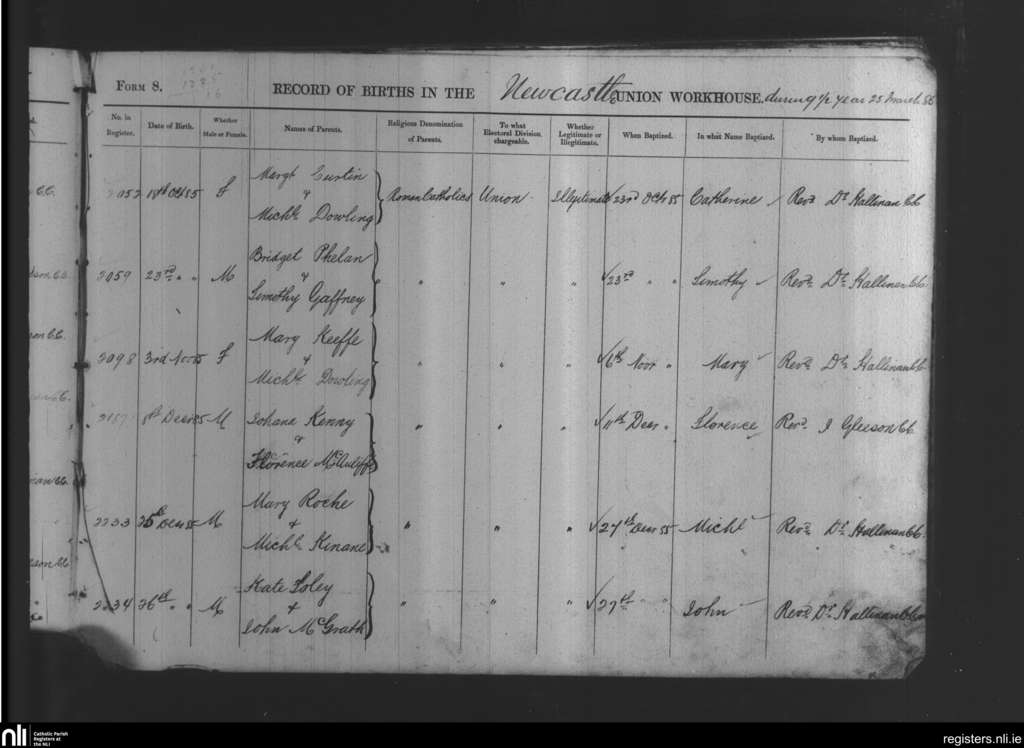 FORM 8. RECORD OF BIRTHS IN THE Newcastle UNION WORKHOUSE. during ½ year 25 March 86
No. in Register. Date of Birth. Whether Male or Female. Names of Parents. Religious Denomination of Parents. To what Electoral Division chargeable. Whether Legitimate or Illegitimate. When Baptized. In what Name Baptized. By whom Baptized.
Margt Curtin
2052 18th Oct 85 F & Roman Catholics Union Illegitimate √ 23rd Oct 85 Catherine Revd Dr Hallinan CC
Michl Dowling
Bridget Phelan
2059 23rd " " M & " " " √ 23rd " " Timothy Revd Dr Hallinan CC
Timothy Gaffney
Mary Keeffe
2098 3rd Novr 85 F & " " " √ 6th Novr " Mary Revd Dr Hallinan CC
Michl Dowling
8th Decr 85 M Johana Kenny " " " √ 11th Decr " Florence Revd J Gleeson CC
&
Florence McAuliffe
Mary Roche
2233 25th Decr 85 M & " " " √ 27th Decr 85 Michl Revd Dr Hallinan CC
Michl Kinane
Kate Foley
2234 26th " " M & " " " √ 27th " " John Revd Dr Hallinan CC
John McGrath
nli Catholic Parish Registers at the NLI
registers.nli.ie